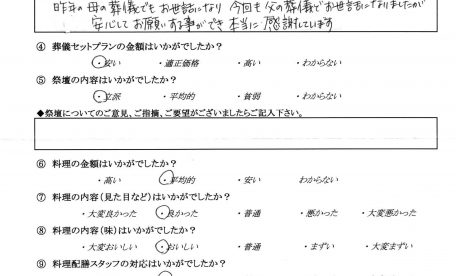 昨年の母の葬儀でもお世話になり 今回も父の葬儀でお世話になりましたが
安心してお願いする事ができ 本当に感謝しています
④ 葬儀セットプランの金額はいかがでしたか？
・安い ・適正価格 ・高い ・わからない
⑤ 祭壇の内容はいかがでしたか？
・立派 ・平均的 ・貧弱 ・わからない
◆祭壇についてのご意見、ご指摘、ご要望がございましたらご記入下さい。
⑥ 料理の金額はいかがでしたか？
・高い ・平均的 ・安い わからない
⑦ 料理の内容（見た目など）はいかがでしたか？
・大変良かった ・良かった ・普通 ・悪かった ・大変悪かった
⑧ 料理の内容（味）はいかがでしたか？
・大変おいしい ・おいしい ・普通 ・まずい ・大変まずい
⑨ 料理配膳スタッフの対応はいかがでしたか？